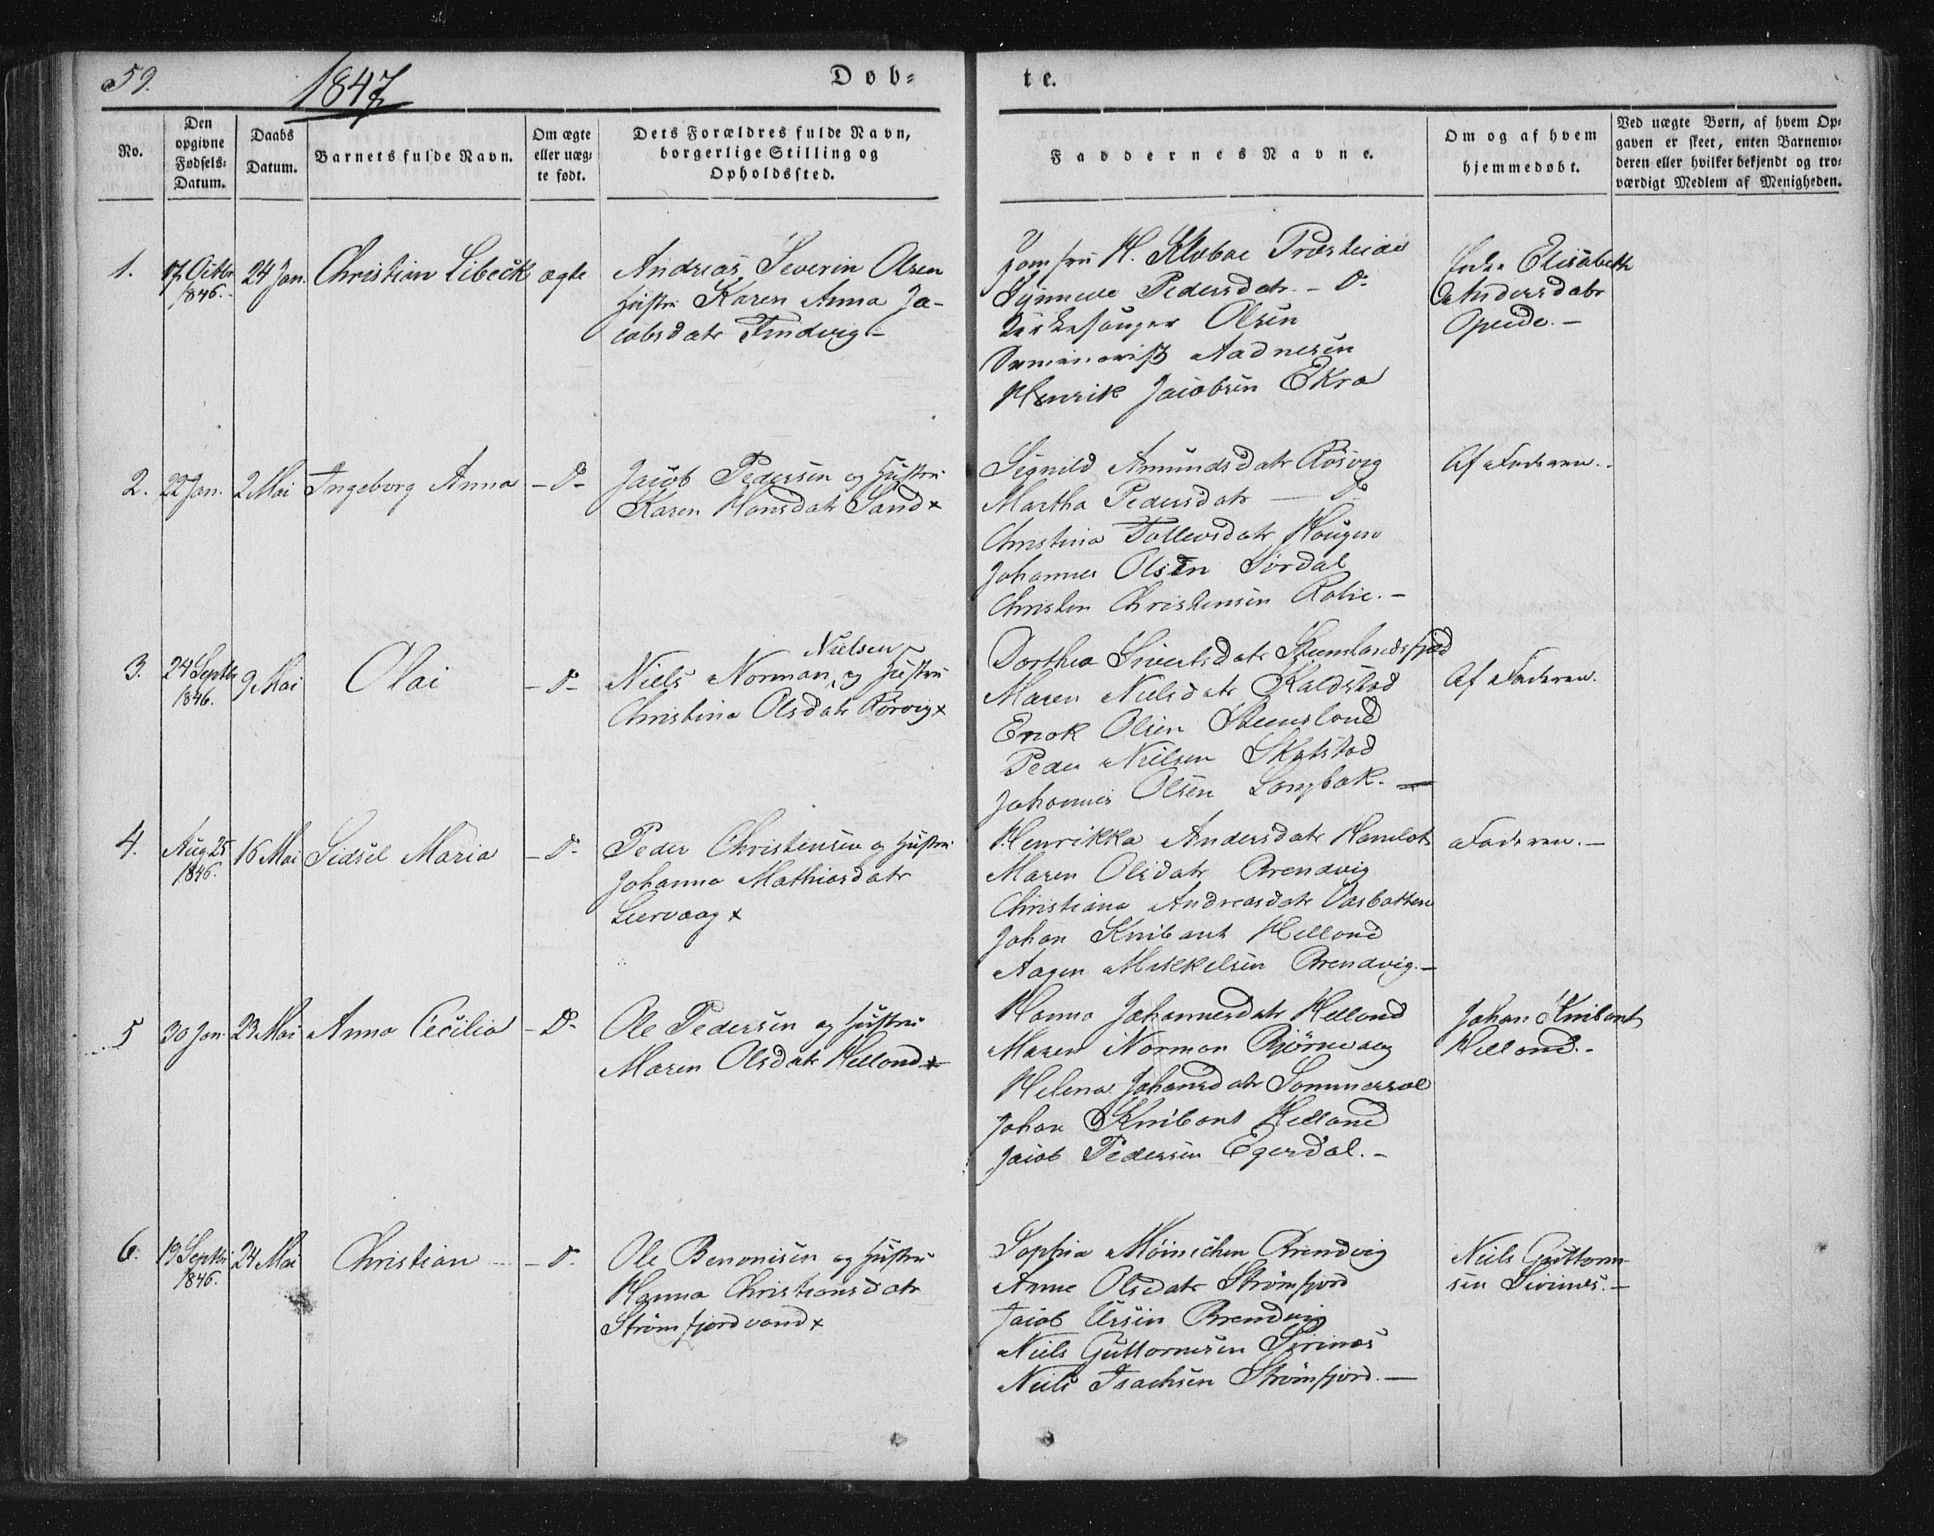 59.
1847
Døb-
te.
No.
Den opgivne Fødsels-Datum.
Daabs Datum.
Barnets fulde Navn.
Om ægte eller uægte født.
Dets Forældres fulde Navn, borgerlige Stilling og Opholdssted.
Faddernes Navne.
Om og af hvem hjemmedøbt.
Ved uægte Børn, af hvem Opgaven er skeet, enten Barnemoderen eller hvilket bekjendt og troværdigt Medlem af Menigheden.
1.
17 Octbr 1846.
24 Jan.
Christian Libeck
ægte
Andreas Severin Olsen
Hustru Karen Anna Ja-
cobsdatr Findvig.
Jomfru H. Klæboe Præsteide
Synneve Pedersdatr. - D-
Kirkesanger Olsen
Seminarist Aadnesen
Henrik Jacobsen Ekra
Enke Elisabeth
Andersdatr
Opeide.-
2.
22 Jan.
2 Mai
Ingeborg Anna
- D-
Jacob Pedersen og Hustru
Karen Hansdatr Sand x
Signild Amundsdatr Rösvig
Martha Pedersdatr - D-
Christina Tollevsdatr Haugen
Johannes Olsen Sördal
Christen Christensen Rotie.-
Af Faderen.
3.
24 Septbr 1846.
9 Mai
Olai
- D-
Nielsen
Niels Norman, og Hustru
Christina Olsdatr Rörvig x
Dorthea Sivertsdatr Steenslandsfjord
Maren Nielsdatr Kaldstad
Enok Olsen Steensland
Peder Nielsen Skotstad
Johannes Olsen Langbak.-
Af Faderen.
4.
Aug 25 1846.
16 Mai
Sidsel Maria
- D-
Peder Christensen og Hustru
Johanna Mathiasdatr
Leervaag x
Henrikka Andersdatr Hamlot
Maren Olsdatr Brendvig
Christiana Andreasdatr Vasbotten
Johan Knibant Helland
Aagen Mikkelsen Brendvig.-
Faderen.-
5
30 Jan
23 Mai
Anna Cecilia
- D-
Ole Pedersen og Hustru
Maren Olsdatr Helland x
Hanna Johannesdatr Helland
Maren Norman Björnevaag
Helena Johansdatr Sommersæl
Johan Knibant Helland
Jacob Pedersen Egerdal.-
Johan Knibant
Helland.-
6.
19 Septbr 1846.
24 Mai
Christian
- D-
Ole Benonisen og Hustru
Hanna Christiansdatr
Strömfjordvand x
Sophia Möinichen Brendvig
Anne Olsdatr Strömfjord
Jacob Ursin Brendvig
Niels Guttormsen Sirines
Niels Isachsen Strömfjord.-
Niels Guttorm-
sen Sirines.-